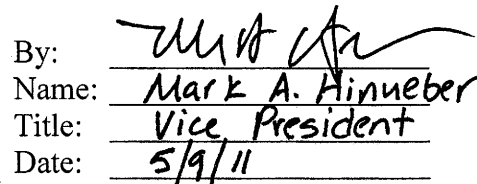 By:
Name: Mark A. Hinueber
Title: Vice President
Date: 5/9/11